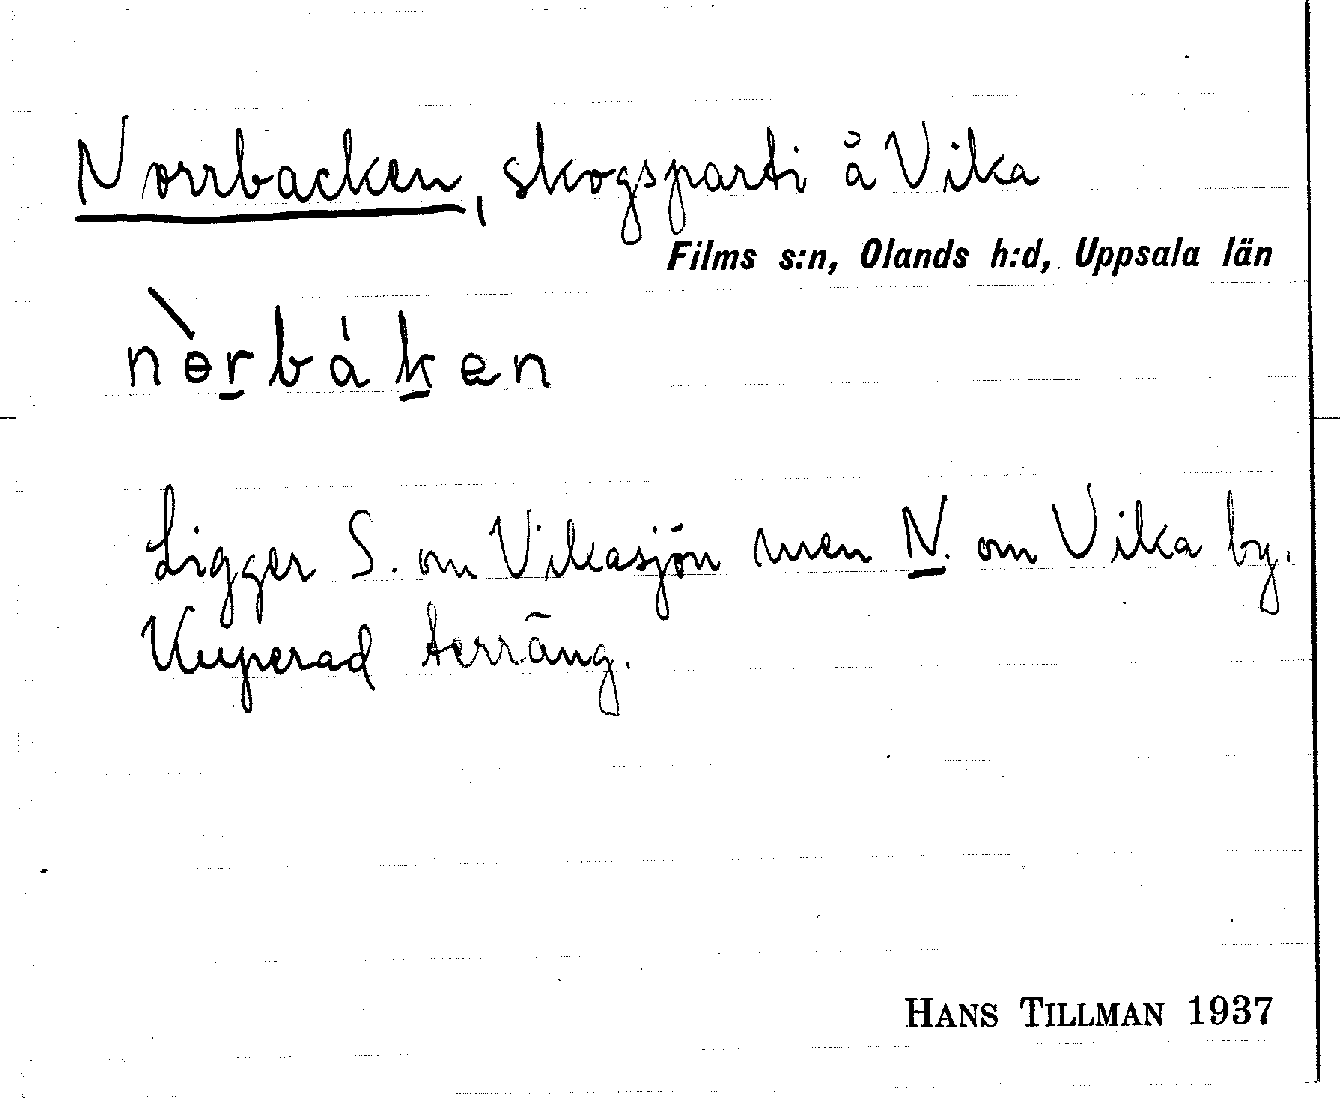 Norrbacken, skogsparti å Vika
Films s:n, Olands h:d, Uppsala län
nɵ̀r̲bák̲en
Ligger S. om Vikasjön men N. om Vika by.
Kuperad terräng.
HANS TILLMAN 1937